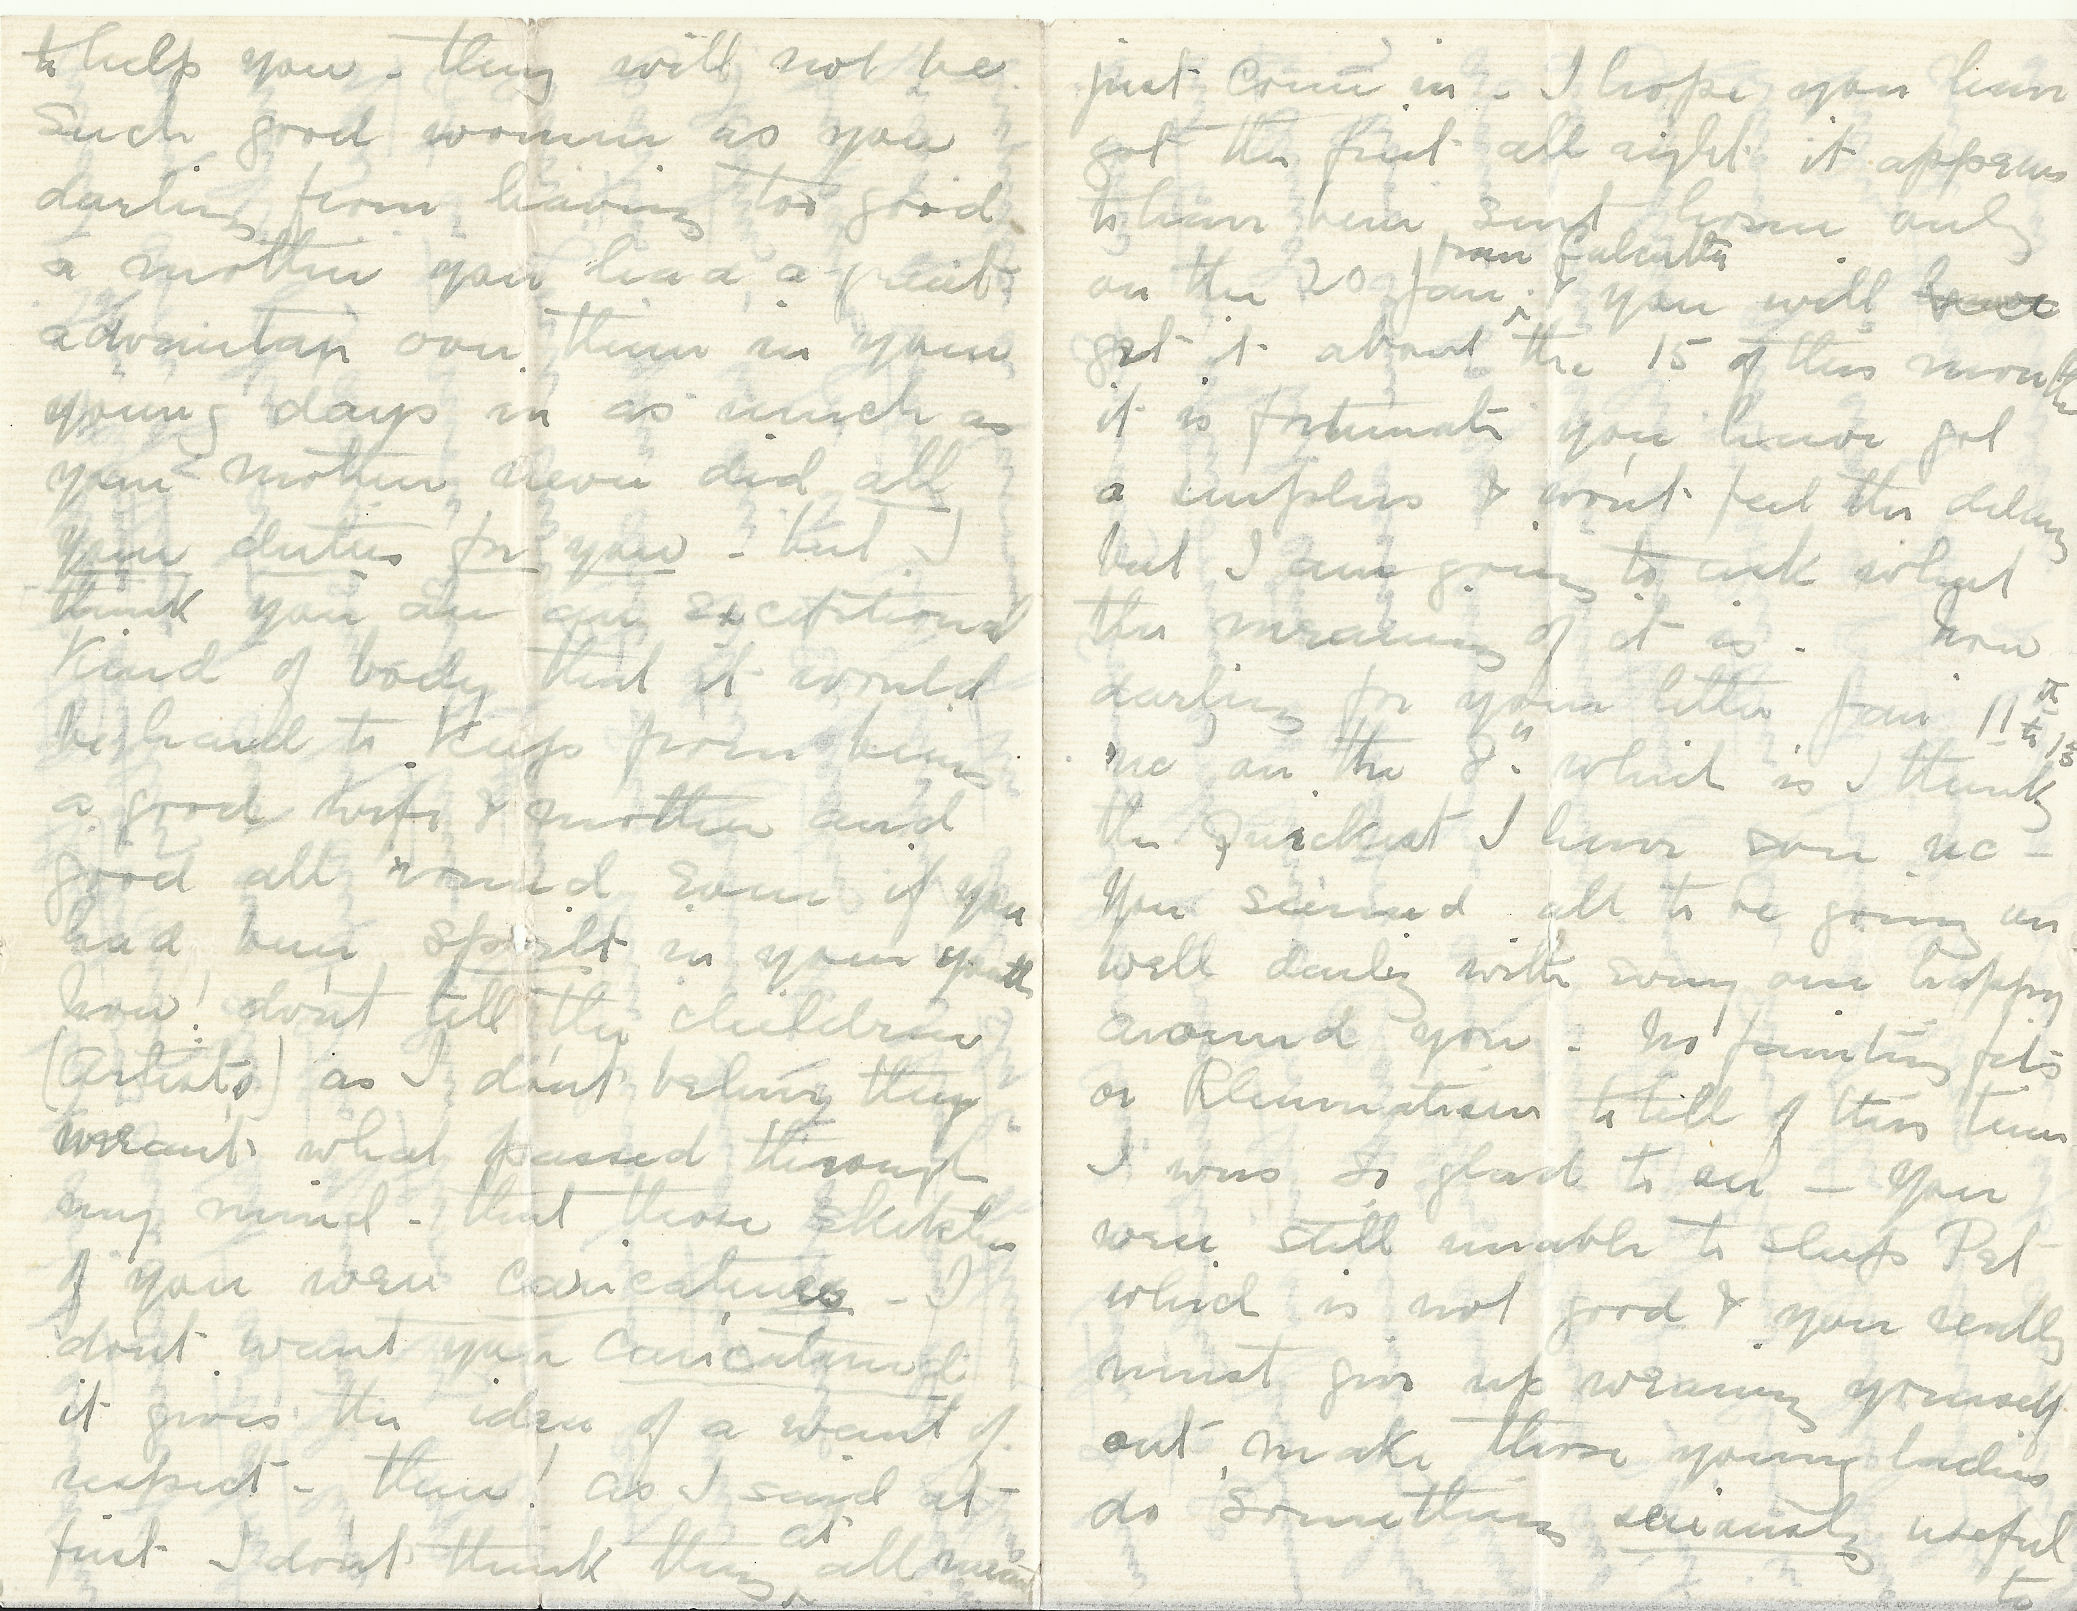 to help you - they will not be
such good women as you
darling from having too good
a mother you had a great
advantage over them in your
young days in as much as
your mother never did all
your duties for you - but I
think you are an exceptional
kind of body that it would
be hard to keep from being
a good wife & mother and
good all round even if you
had been spoilt in your youth
now! don't tell the children
(Artists) as I don't believe they
meant what passed through
my mind - that those sketches
of you were caricatures - I
don't want you caricatured
it gives the idea of a want of
respect - there! as I said at
first I don't think they at all meant
just come in - I hope you have
got the first all right it appears
to have been sent home only
on the 20 Jan from Calcutta & you will have
get it about the 15 of this month
it is fortunate you have got
a surplus & won't feel the delay
but I am going to ask what
the meaning of it is - Now
darling for your letter Jan 11th to 15
rec on the 8" which is I think
the quickest I have ever rec -
You seemed all to be going on
well darling with every one happy
around you - no fainting fits
or Rheumatism to tell of this time
I was so glad to see - You
were still unable to sleep Pet
which is not good & you really
must give up wearing yourself
out, make those young ladies
do something seriously useful
to